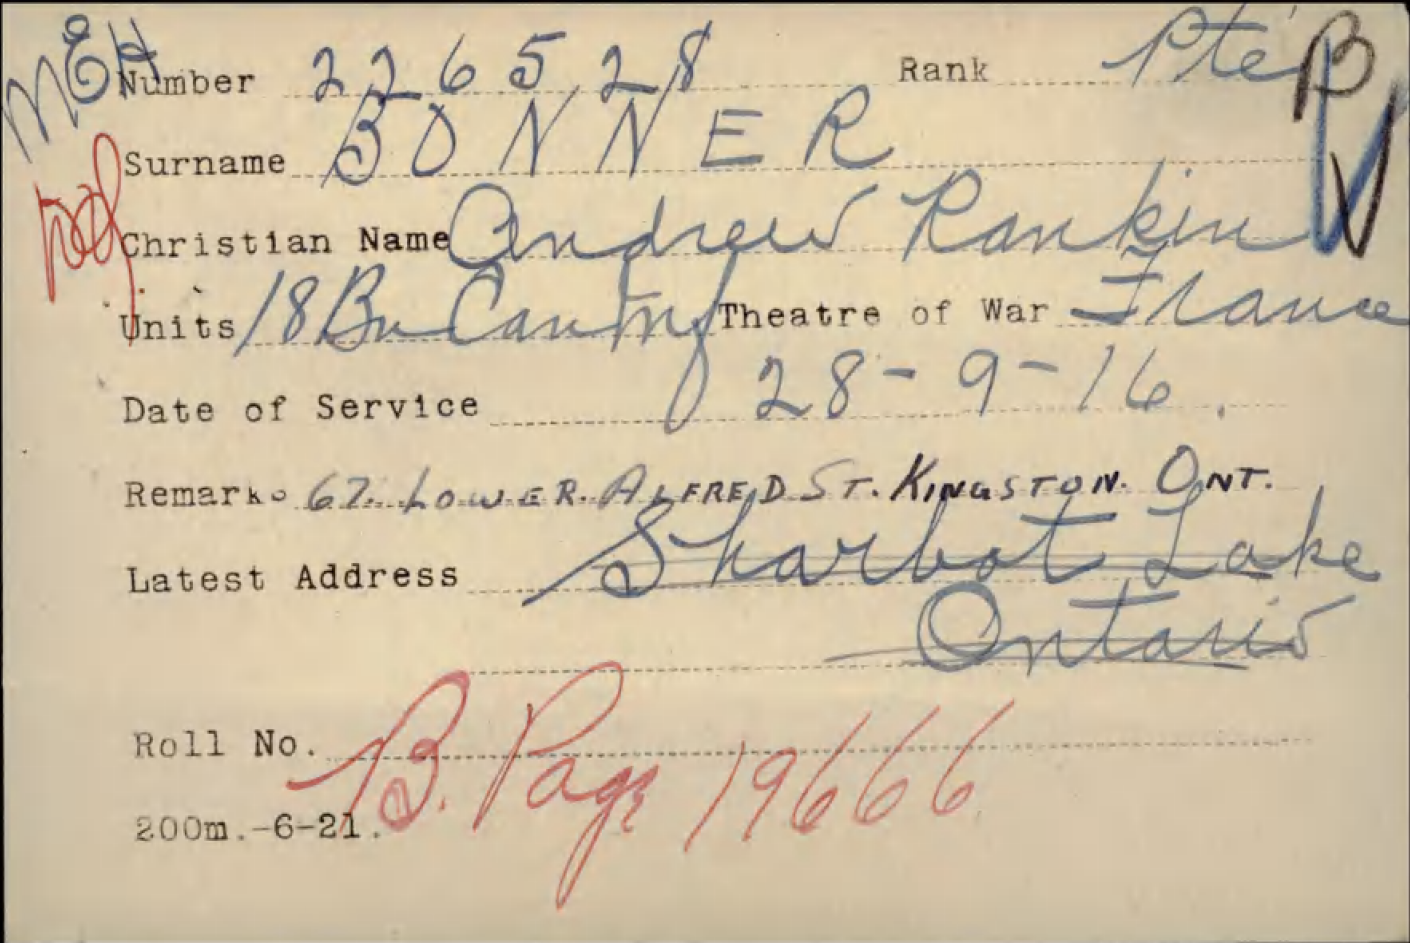 MEH
Number 226528 Rank Pte B V
Surname BONNER
Christian Name Andrew Rankin
Units 18 Bn Can Inf Theatre of War France
Date of Service 28-9-16.
Remarks 67. LOWER. ALFRED ST. KINGSTON. ONT.
Latest Address Sharbot Lake
Ontario
Roll No. B. Page 19666
200m.-6-21.